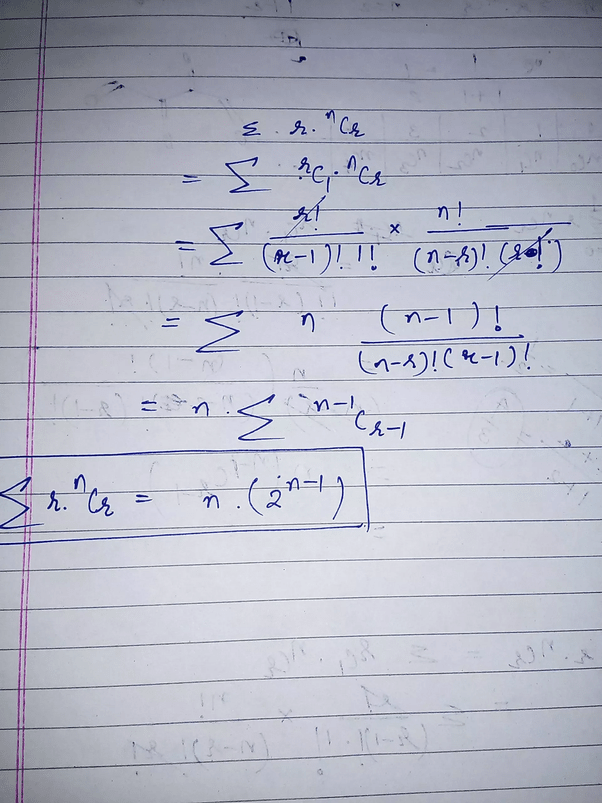 Σ r. ⁿCr
= Σ ʳC₁ . ⁿCr
= Σ r! / (r-1)! 1! × n! / (n-r)! (r!)
= Σ n (n-1)! / (n-r)! (r-1)!
= n . Σ ⁿ⁻¹Cr-1
Σ r. ⁿCr = n . (2ⁿ⁻¹)